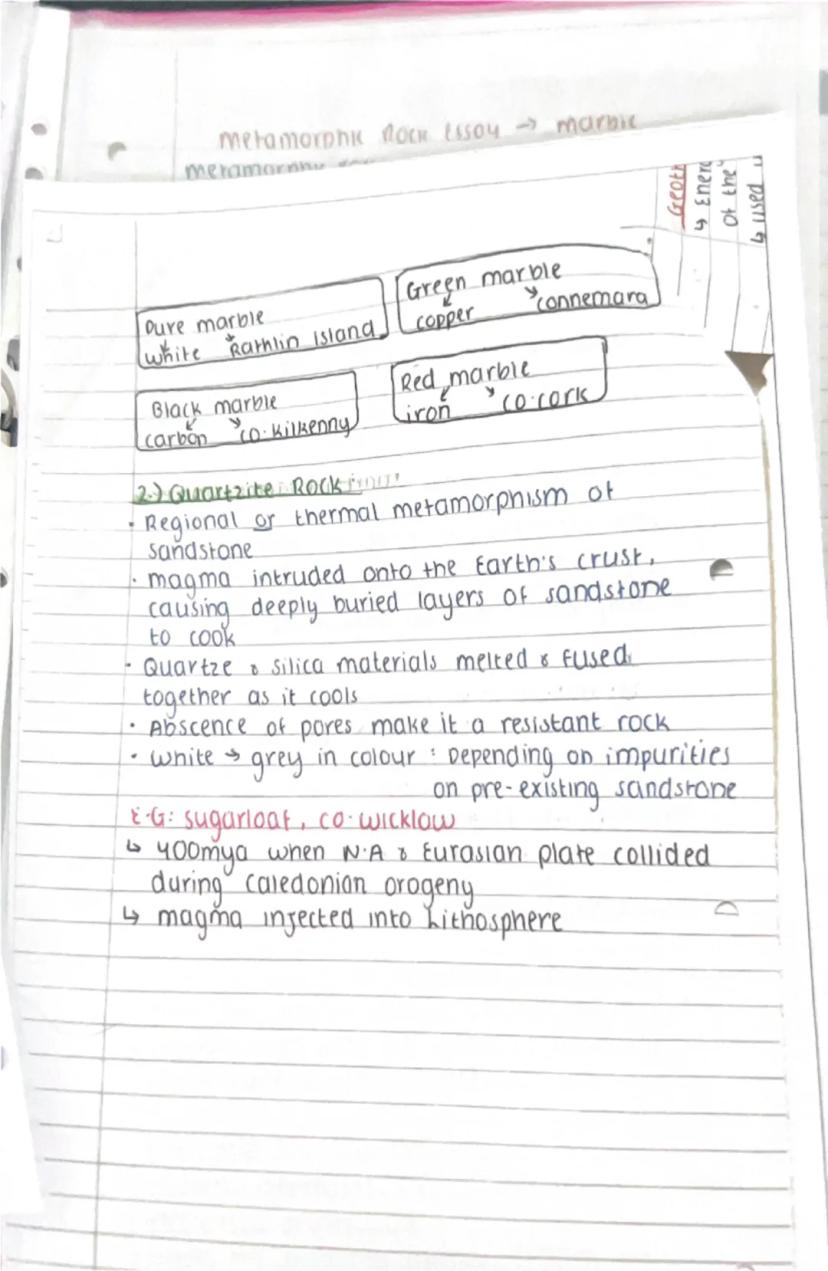 metamorphic Rock Essay → marble
Geoth
↳ Energ
Of the
↳ used u
Pure marble
white Rathlin Island
Green marble
copper connemara
Black marble
carbon co.kilkenny
Red marble
iron co.cork
2.) Quartzite Rock
· Regional or thermal metamorphism of
sandstone
· magma intruded onto the Earth's crust,
causing deeply buried layers of sandstone
to cook
· Quartze & silica materials melted & fused
together as it cools
· Abscence of pores make it a resistant rock
· White → grey in colour : Depending on impurities
on pre-existing sandstone
E.G: sugarloaf, co.wicklow
↳ 400mya when N.A & Eurasian plate collided
during caledonian orogeny
↳ magma injected into Lithosphere